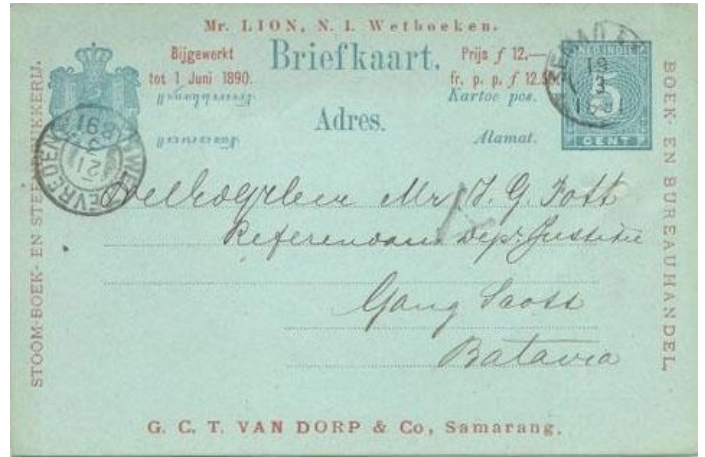 Mr. LION, N. I. Wetboeken.
Bijgewerkt
tot 1 Juni 1890.
Briefkaart.
Prijs f 12.—
fr. p. p. f 12.50
Kartoe pos.
Adres.
Alamat.
NED-INDIE
5
CENT
19
3
1891
WELTEVREDEN
21
3
891
STOOM-BOEK- EN STEENDRUKKERIJ.
BOEK- EN BUREAUHANDEL.
Weledelgeb. Heer Mr. J. G. Pott
Referendaris Dep. Justitie
Gang Scott
Batavia
G. C. T. VAN DORP & Co, Samarang.